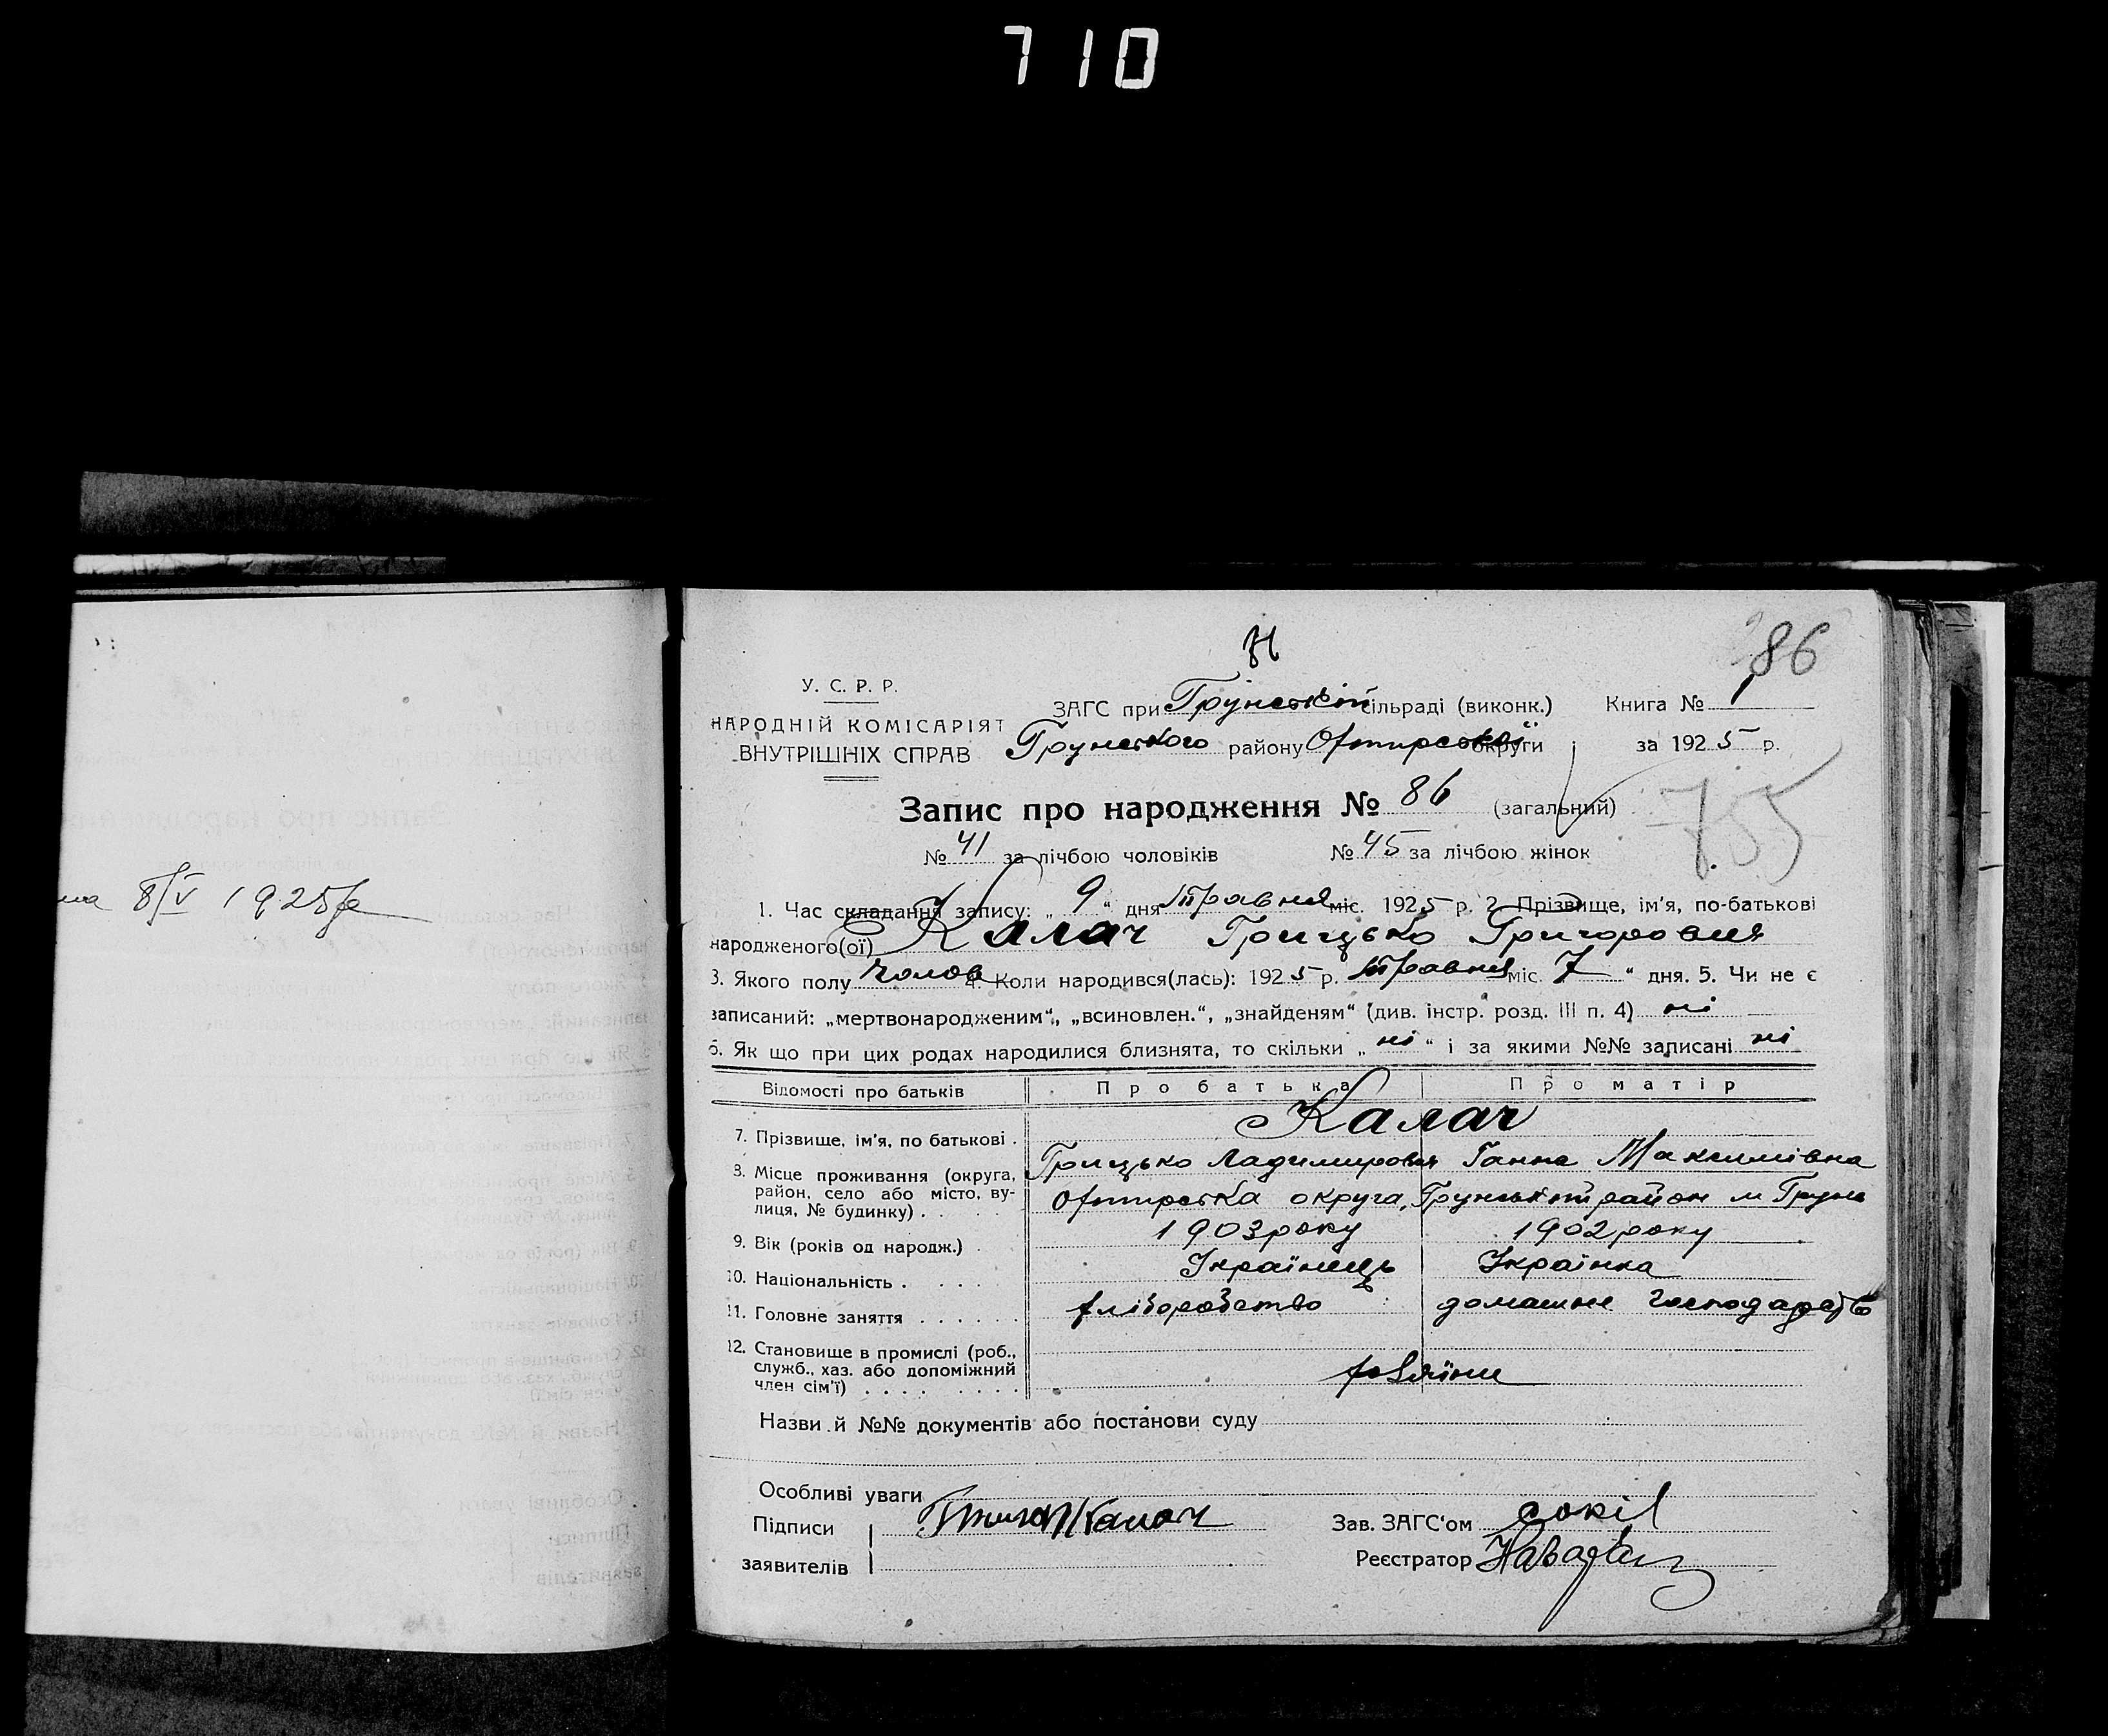 710
86
У. С. Р. Р.
НАРОДНІЙ КОМІСАРІЯТ
ВНУТРІШНІХ СПРАВ
ЗАГС при Грунській сільраді (виконк.) Книга № 1
Грунського району Охтирської округи за 1925 р.
Запис про народження № 86 (загальний)
755
№ 41 за лічбою чоловіків № 45 за лічбою жінок
на 8/V 1925р
1. Час складання запису: „ 9 “ дня травня міс. 1925 р. 2. Прізвище, ім'я, по-батькові
народженого(ої) Калач Грицько Григоровия
3. Якого полу чолов 4. Коли народився(лась): 1925 р. травня міс. 7 “ дня. 5. Чи не є
записаний: „мертвонародженим“, „всиновлен.“, „знайденям“ (див. інстр. розд. III п. 4) ні
6. Як що при цих родах народилися близнята, то скільки „ ні “ і за якими №№ записані ні
Відомості про батьків Про батька Про матір
7. Прізвище, ім'я, по батькові . Калач
Грицько Ладимировия Ганна Максимівна
8. Місце проживання (округа, район, село або місто, вулиця, № будинку) . Охтирська округа, Грунський район м Грунь
9. Вік (років од народж.) . 1903 року 1902 року
10. Національність . Українець Українка
11. Головне заняття хліборобство домашнє господарство
12. Становище в промислі (роб.,
служб., хаз. або допоміжний
член сім'ї) хазяїни
Назви й №№ документів або постанови суду
Особливі уваги
Підписи Калач Зав. ЗАГС'ом Сокіл
заявителів Реєстратор